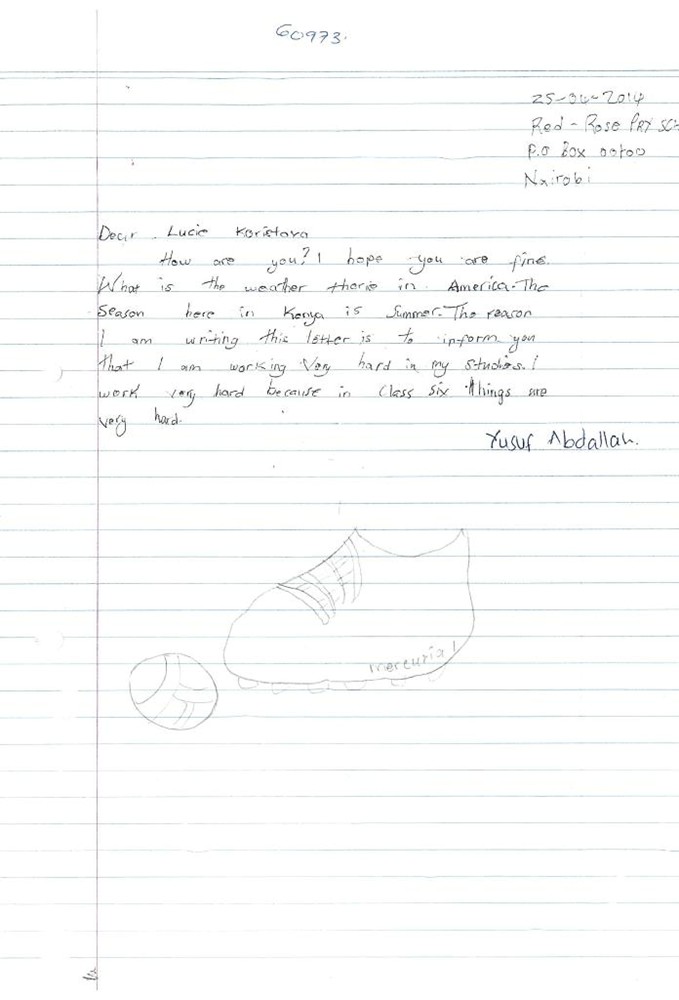 60973.
25-04-2014
Red - Rose PRY SCH
P.O Box 00100
Nairobi
Dear Lucie Koristava
How are you? I hope you are fine.
What is the weather there in America. The
Season here in Kenya is Summer. The reason
I am writing this letter is to inform you
that I am working Very hard in my studies. I
work very hard because in Class Six things are
very hard.
Yusuf Abdallah.
mercurial